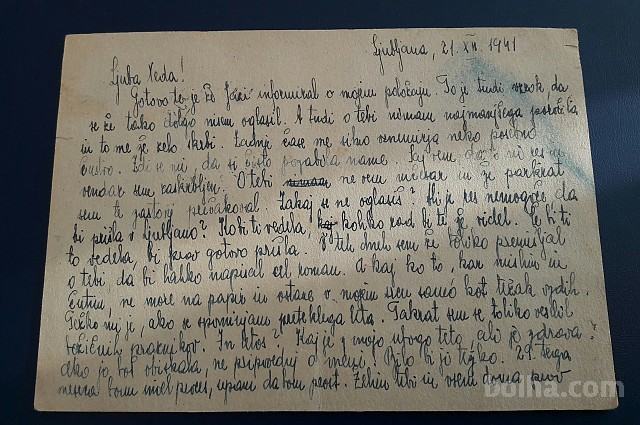 Ljubljana, 21. XII. 1941
Ljuba Veda!
Gotovo te je že informiral o mojem položaju. To je tudi vzrok, da
se že tako dolgo nisem oglasil. A tudi o tebi nimam najmanjšega poročila
in to me je zelo skrbi. Zadnje čase me silno vznemirja neko posebno
čustvo. Zdi se mi, da si čisto pozabila name. Saj vem, da to ni res in
vendar sem zaskrbljen. O tebi ne vem ničesar in že parkrat
sem te zastonj pričakoval. Zakaj se ne oglasiš? Ali je res nemogoče, da
bi prišla v Ljubljano? Ko bi ti vedela, koliko rad bi te že videl. Če bi ti
to vedela, bi prav gotovo prišla. V teh dneh sem že toliko premišljal
o tebi, da bi lahko napisal cel roman. A kaj ko to, kar mislim in
čutim, ne more na papir in ostane v mojem srcu samó kot težak vzdih.
Težko mi je, ako se spominjam preteklega leta. Takrat sem se toliko veselil
božičnih praznikov. In letos? Kaj je z mojo ubogo teto, ali je zdrava?
Ako jo boš obiskala, ne pripoveduj o meni. Bilo bi ji težko. 29. tega
meseca bom imel proces, upam da bom prost. Želim tebi in vsem doma prav
bolha.com